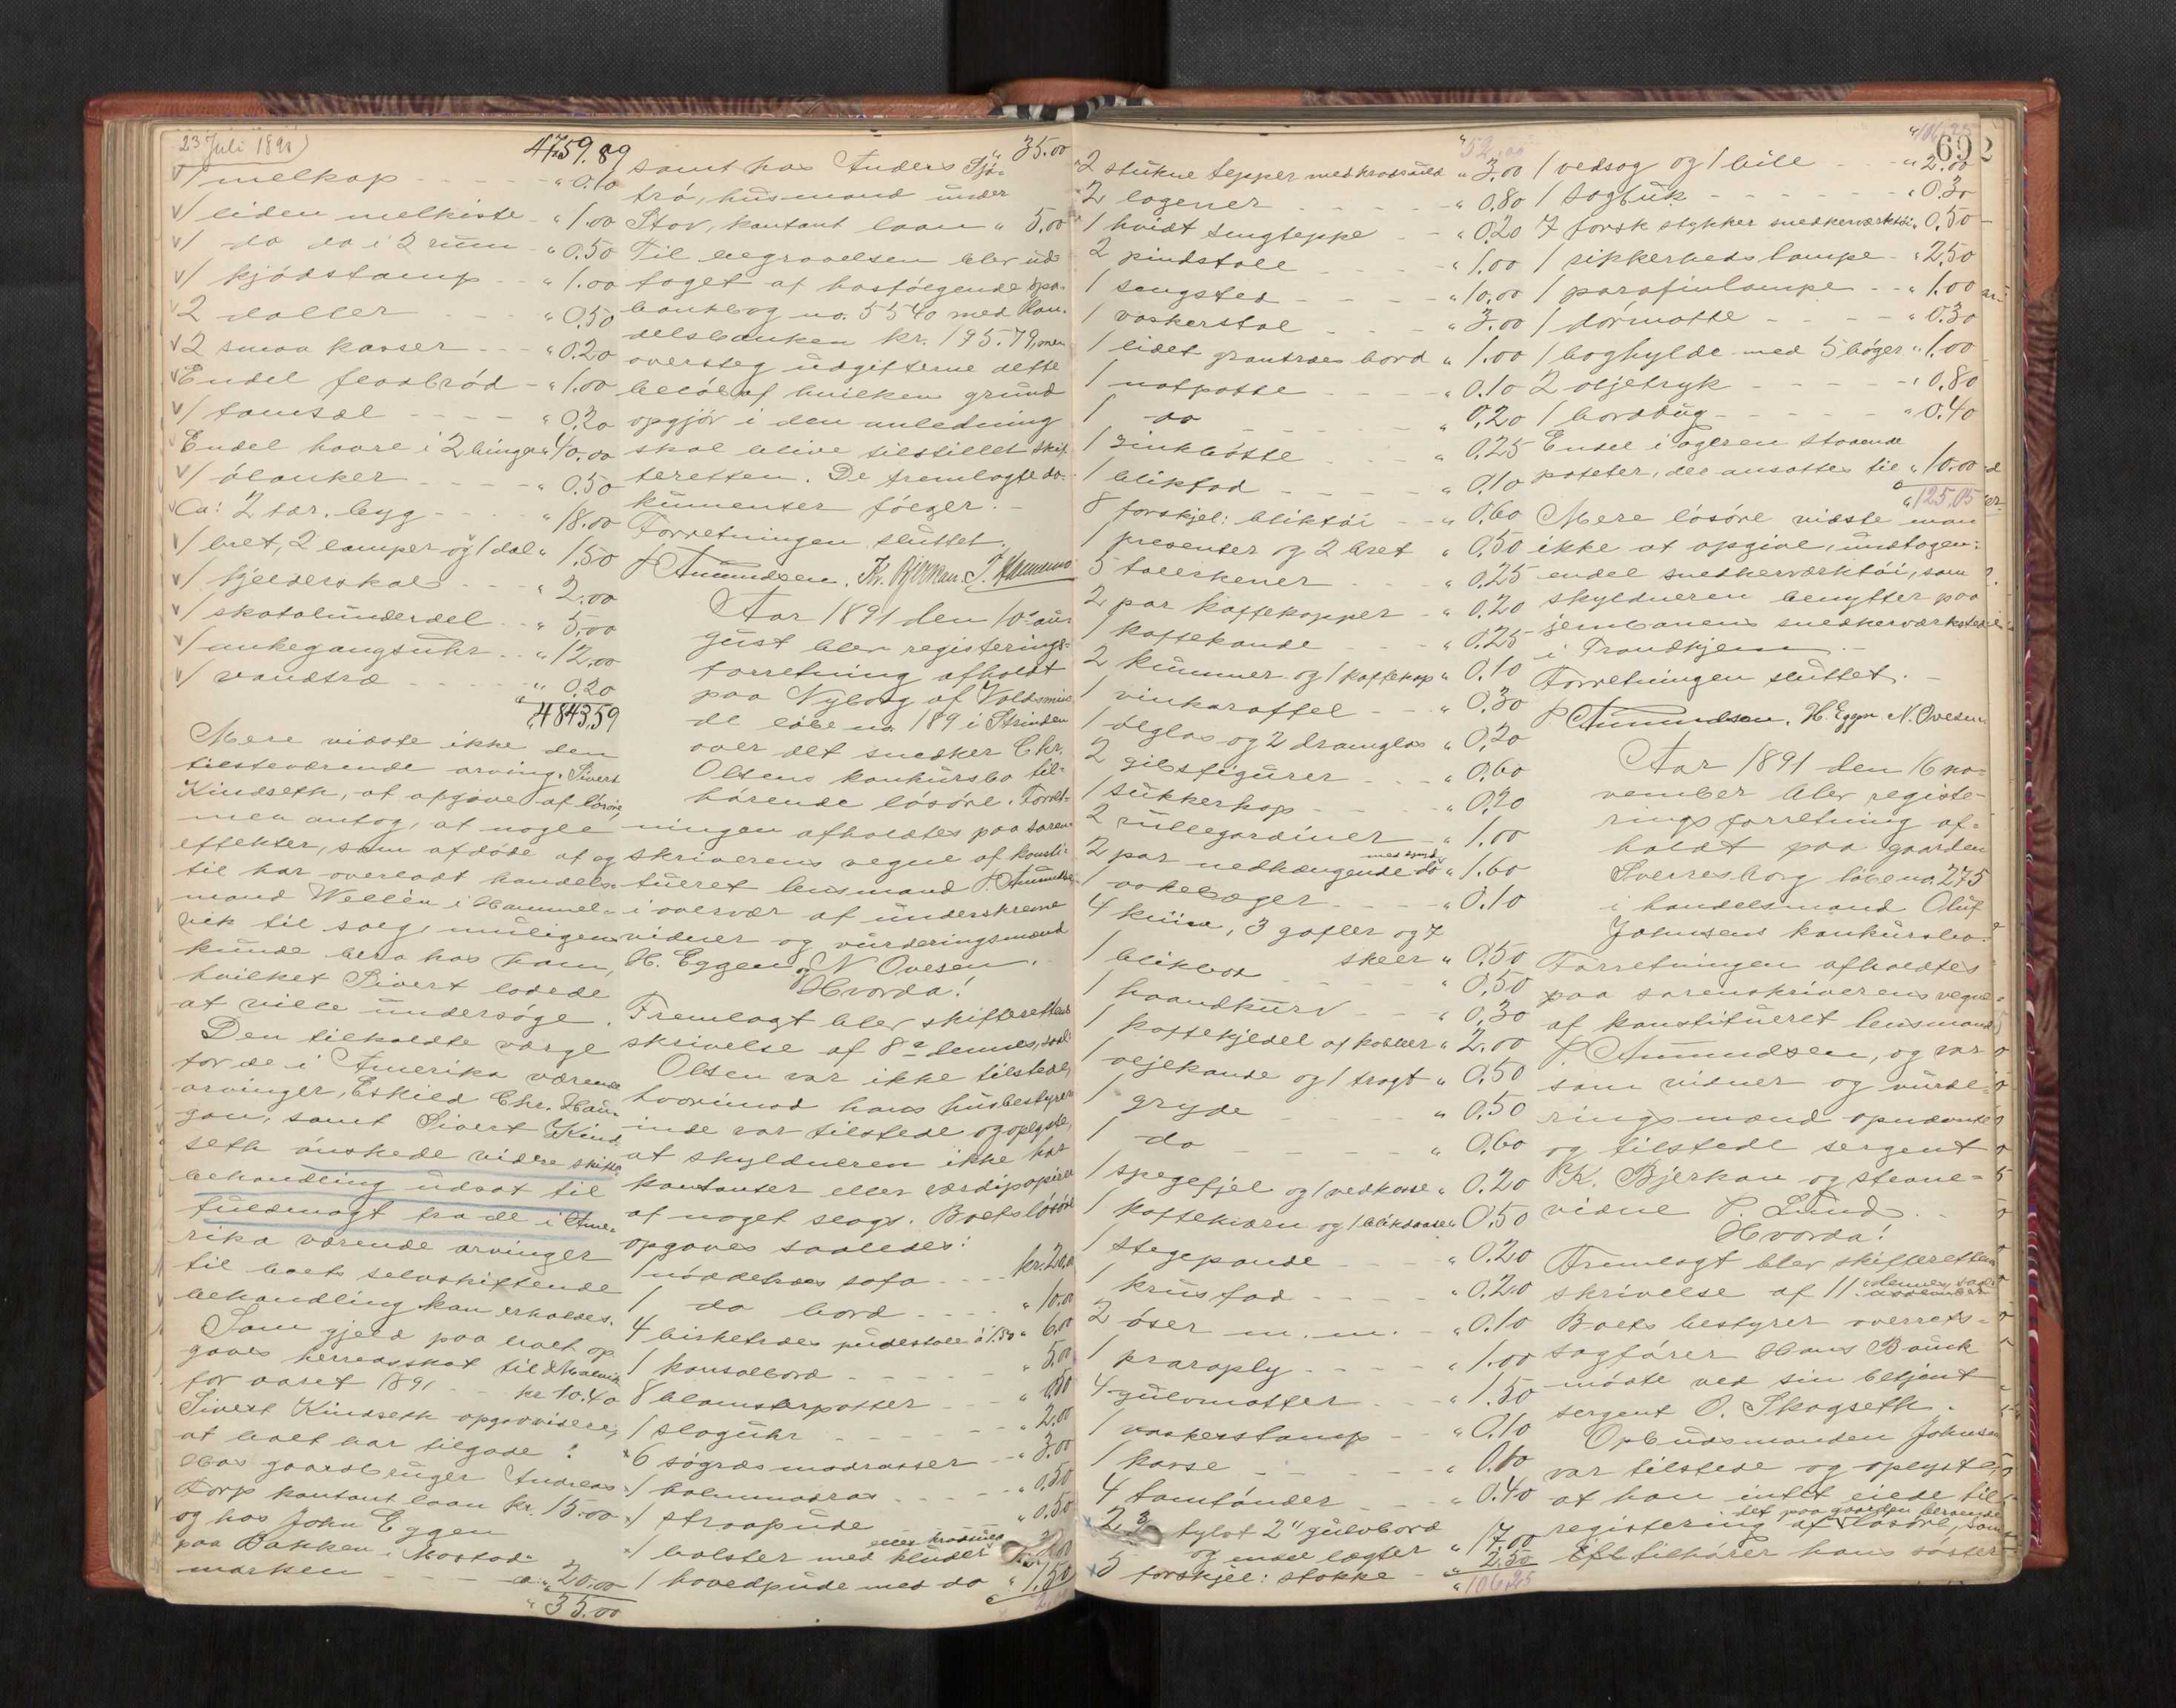 23 Juli 1891)
4759.89
1 melkop - - - - - " 0.10
1 liden melkiste - " 1.00
1 do do i 2 rum - " 0.50
1 kjödstamp - - " 1.00
2 daller - - - " 0.50
2 smaa kasser - - " 0.20
Endel fladbröd - " 1.00
1 tomsæl - - - - " 0.20
Endel havre i 2 binger " 40.00
1 ölanker - - - - " 0.50
Ca: 2 tdr. byg - - - " 18.00
1 bret, 2 lamper og 1 dal " 1.50
1 fjelderskal - - - " 2.00
1 skatolunderdel - - " 5.00
1 ankergangsuhr - - " 12.00
1 vandtræ - - - - " 0.20
" 4843.59
Mere vidste ikke den
tilstedeværende arving, Sivert
Kindseth, at opgive af lösöre,
men antog, at nogle
effekter, som afdöde af og
til har overladt handels-
mand Wellèn i Hammel-
vik til salg, muligens
kunde bero hos ham,
hvilket Sivert lovede
at ville undersöge.
Den tilkaldte værge
for de i Amerika værende
arvinger, Eskild Chr. Hau-
gan, samt Sivert Kind-
seth önskede videre skifte-
behandling udsat til
fuldmagt fra de i Ame-
rika værende arvinger
til boets selvskiftende
behandling kan erholdes.
Som gjæld paa boet op-
gaves herredsskat til Malvik
for aaret 1891 - - kr 10.40
Sivert Kindseth opgav videre,
at boet har tilgode:
Hos gaardbruger Andreas
Torp kontant laan kr. 15.00
og hos John Eggen
paa Bakken i Mostad-
marken - - - - " 20.00
" 35.00
" 35.00
samt hos Anders Sjö-
trö, husmand under
Stav, kontant laan " 5.00
Til begravelsen blev ud-
taget af hosfölgende spa-
bankbog no. 5540 med Han-
delsbanken kr. 195.79, men
oversteg udgifterne dette
belöb, af hvilken grund
opgjör i den anledning
skal blive tilstillet skif-
teretten. De fremlagte do-
kumenter fölger. -
Forretningen sluttet.
P. Amundsen. Kr. Bjerkan.
Aar 1891 den 10de au-
gust blev registerings-
forretning afholdt
paa Nyborg af Voldsmin-
de löbe no. 189 i Strinden
over det snedker Chr.
Olsens konkursbo til-
hörende lösöre. Forret-
ningen afholdtes paa soren-
skriverens vegne af konsti-
tueret lensmand P. Amundsen
i overvær af underskrevne
vidner og vurderingsmænd
H. Eggen og N Ovesen.
Hvorda!
Fremlagt blev skifterettens
skrivelse af 8de dennes, saal.
Olsen var ikke tilstede,
hvorimod hans husbestyrer-
inde var tilstede og oplyste,
at skyldneren ikke har
kontanter eller værdipapirer
af noget slags. Boets lösöre
opgaves saaledes:
1 nöddetræs sofa - - - kr. 20.00
1 do bord - - - " 10.00
4 birketræs pudestole à 1.50 " 6.00
1 konsolbord - - - - - " 5.00
8 blomsterpotter - - - " 0.50
1 slaguhr - - - - - - " 2.00
6 sögræsmadrasser - - " 3.00
1 halmmadras - - - - " 0.50
1 straapude " 0.50
1 bolster med kluder
1 hovedpude med do " 1.50
" 52.00
2 stukne tepper med krøduld " 3.00
2 lagener - - - - - " 0.80
1 hvidt sengteppe - - " 0.20
2 pindstole - - - - " 1.00
1 sengsted - - - - " 10.00
1 vaskerstol - - - - " 3.00
1 lidet grantræs bord " 1.00
1 natpotte - - - - " 0.10
1 do - - - - - " 0.20
1 zinkbötte - - - - " 0.25
1 blikfad - - - - - " 0.10
8 forskjel: bliktöi - - " 0.60
1 presenter og 2 bret " 0.50
5 tallerkener - - - " 0.25
2 par kaffekopper - " 0.20
1 kaffekande - - - " 0.25
2 kummer og 1 kaffekop " 0.10
1 vinkaraffel - - - " 0.30
1 ølglas og 2 dramglas " 0.20
2 gibsfigurer - - - " 0.60
1 sukkerkop - - - " 0.20
2 rullegardiner - - " 1.00
2 par nedhængende do " 1.60
1 vokebæger - - - " 0.10
4 knive, 3 gafler og 7
skeer " 0.50
1 blikbox - - - - " 0.50
1 haandkurv - - - " 0.30
1 kaffekjedel af kobber " 2.00
1 oljekande og 1 tragt " 0.50
1 gryde " 0.50
1 do - - - - - " 0.60
1 spegefjel og 1 vedkasse " 0.20
1 kaffekværn og 1 blikdaase " 0.50
1 stegepande - - - " 0.20
1 krusfad - - - - " 0.20
2 öser m. m. - - " 0.10
1 praraply - - - - " 1.00
4 gulvmatter - - - " 1.50
1 vaskerstamp - - " 0.10
1 kasse - - - - - " 0.10
4 tomtönder - - - " 0.40
2,3 tylvt 2" gulvbord
og endel lægter " 17.00
5 forskjel: stokke - " 2.50
" 106.25
" 106.25
692
1 vedsag og 1 bile - - - " 2.00
1 sagbuk - - - - - - " 0.30
7 forsk stykker snedkerværktöi " 0.50
1 sikkerhedslampe - " 2.50
1 parafinlampe - - " 1.00
1 dörmatte - - - - " 0.30
1 boghylde med 5 böger " 1.00
2 oljetryk - - - - - " 0.80
1 borddug - - - - - " 0.40
Endel i ageren staaende
poteter, der ansattes til " 10.00
" 125.05
Mere lösöre vidste man
ikke at opgive, undtagen:
endel snedkerværktöi, som
skyldneren benytter paa
jernbanens snedkerværksted
i Trondhjem. -
Forretningen sluttet. -
P. Amundsen. H. Eggen N. Ovesen
Aar 1891 den 16 no-
vember blev registe-
ringsforretning af-
holdt paa gaarden
Sverresborg löbe no. 275
i handelsmand Oluf
Johnsens konkursbo.
Forretningen afholdtes
paa sorenskriverens vegne
af konstitueret lensmand
P. Amundsen, og var
som vidner og vurde-
ringsmænd opnævnte
og tilstede sergent
K. Bjerkan og stevne-
vidne P. Lund. -
Hvorda!
Fremlagt blev skifterettens
skrivelse af 11. dennes saal.
Boets bestyrer overrets-
sagförer Hans Bauck
mödte ved sin betjent
sergent O. Skogseth.
Opbudsmanden Johnsen
var tilstede og oplyste,
at han intet eiede til
det paa gaarden beroende
registering af lösöre, som
tilhörer hans söster